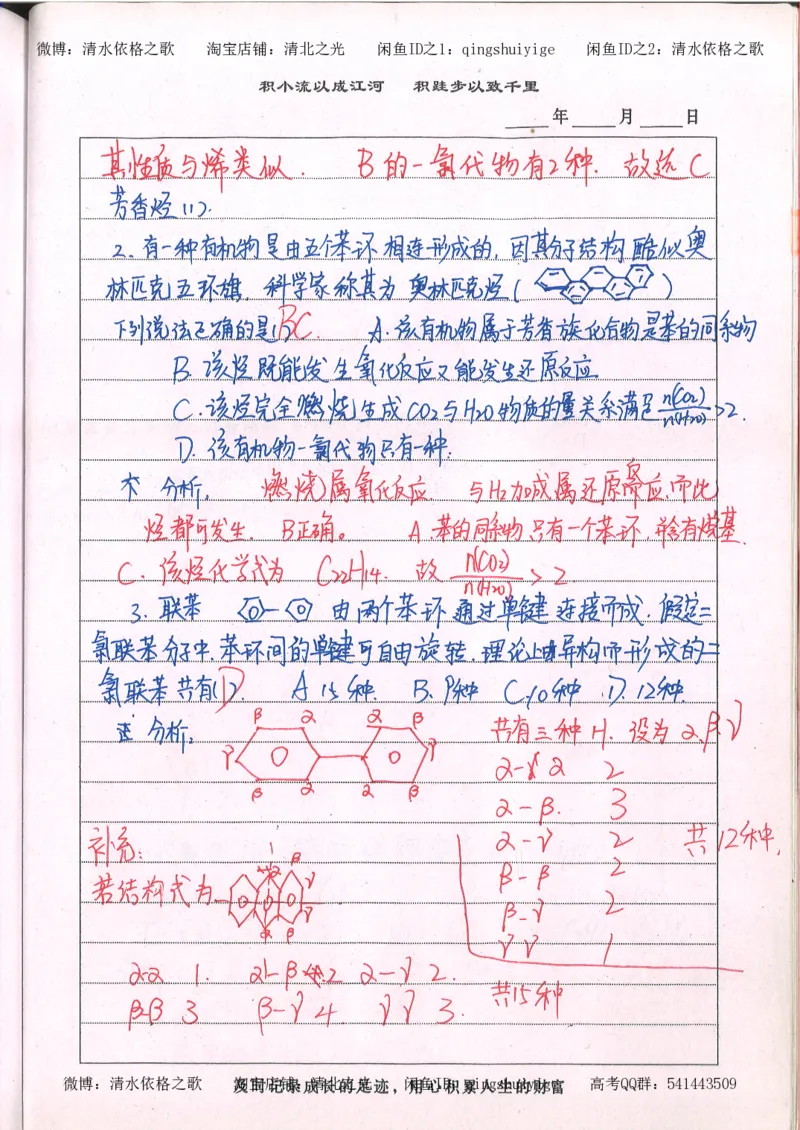 微博：清水依格之歌 淘宝店铺：清北之光 闲鱼ID之1：qingshuiyige 闲鱼ID之2：清水依格之歌
积小流以成江河 积跬步以致千里
年 月 日
其性质与烯类似. B的一氯代物有2种. 故选C
芳香烃(1).
2、有一种有机物是由五个苯环相连形成的, 因其分子结构酷似奥
林匹克五环旗, 科学家称其为奥林匹克烃( )
下列说法正确的是( )BC. A.该有机物属于芳香族化合物是苯的同系物
B.该烃既能发生氧化反应又能发生还原反应
C.该烃完全燃烧生成CO2与H2O物质的量关系满足n(CO2)/n(H2O)>2.
D.该有机物一氯代物只有一种.
分析, 燃烧属氧化反应 与H2加成属还原反应,而此
烃都可发生. B正确。 A.苯的同系物只有一个苯环,并含有烷基.
C.该烃化学式为 C22H14. 故 n(CO2)/n(H2O) > 2
3.联苯 由两个苯环通过单键连接而成, 假定二
氯联苯分子中,苯环间的单键可自由旋转,理论上异构而形成的二
氯联苯共有( )D. A 15种. B. 9种 C.10种 .D.12种.
分析,
β α α β
γ γ
β α α β
共有三种H. 设为α.β.γ
α-α 2
α-β. 3
α-γ 2
β-β 2
β-γ 2
γγ 1
共12种,
补充:
若结构式为
α β
γ
γ
α β
α-α 1. α-β 2 α-γ 2.
β-β 3 β-γ 4 γγ 3.
共15种
微博：清水依格之歌 淘宝店铺：清北之光 闲鱼ID：qingshuiyige 高考QQ群：541443509
及时记录成长的足迹，用心积累人生的财富